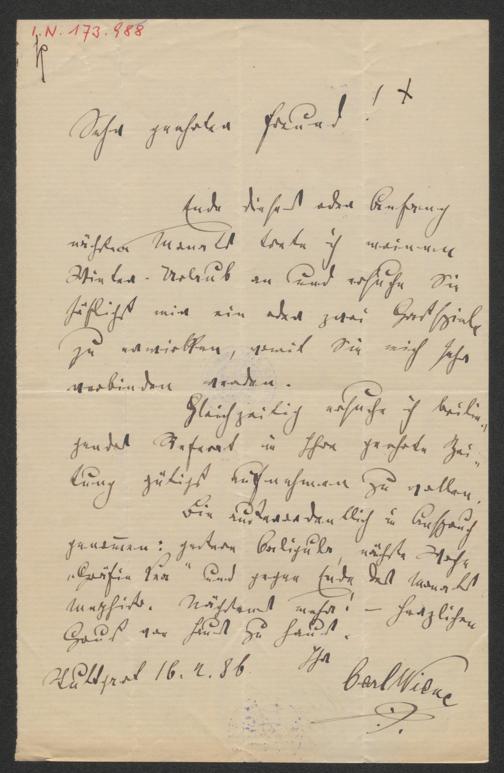 I.N. 173.988
Sehr geehrter Freund!
Ende dieses oder Anfang
nächsten Monats trete ich meinen
Winter-Urlaub an und ersuche Sie
höflichst mir ein oder zwei Gastspiele
zu erwirken, womit Sie mich sehr
verbinden werden.
Gleichzeitig ersuche ich beilie-
gendes Referat in Ihre geehrte Zei-
tung gütigst aufnehmen zu wollen.
Bin außerordentlich in Anspruch
genommen: gestern Caligula, nächste Woche
"Gräfin Lea" und gegen Ende des Monats
Mephisto. Nächstens mehr! – Herzlichen
Gruß von Haus zu Haus.
Ihr
Stuttgart 16. 86
Carl Wiene